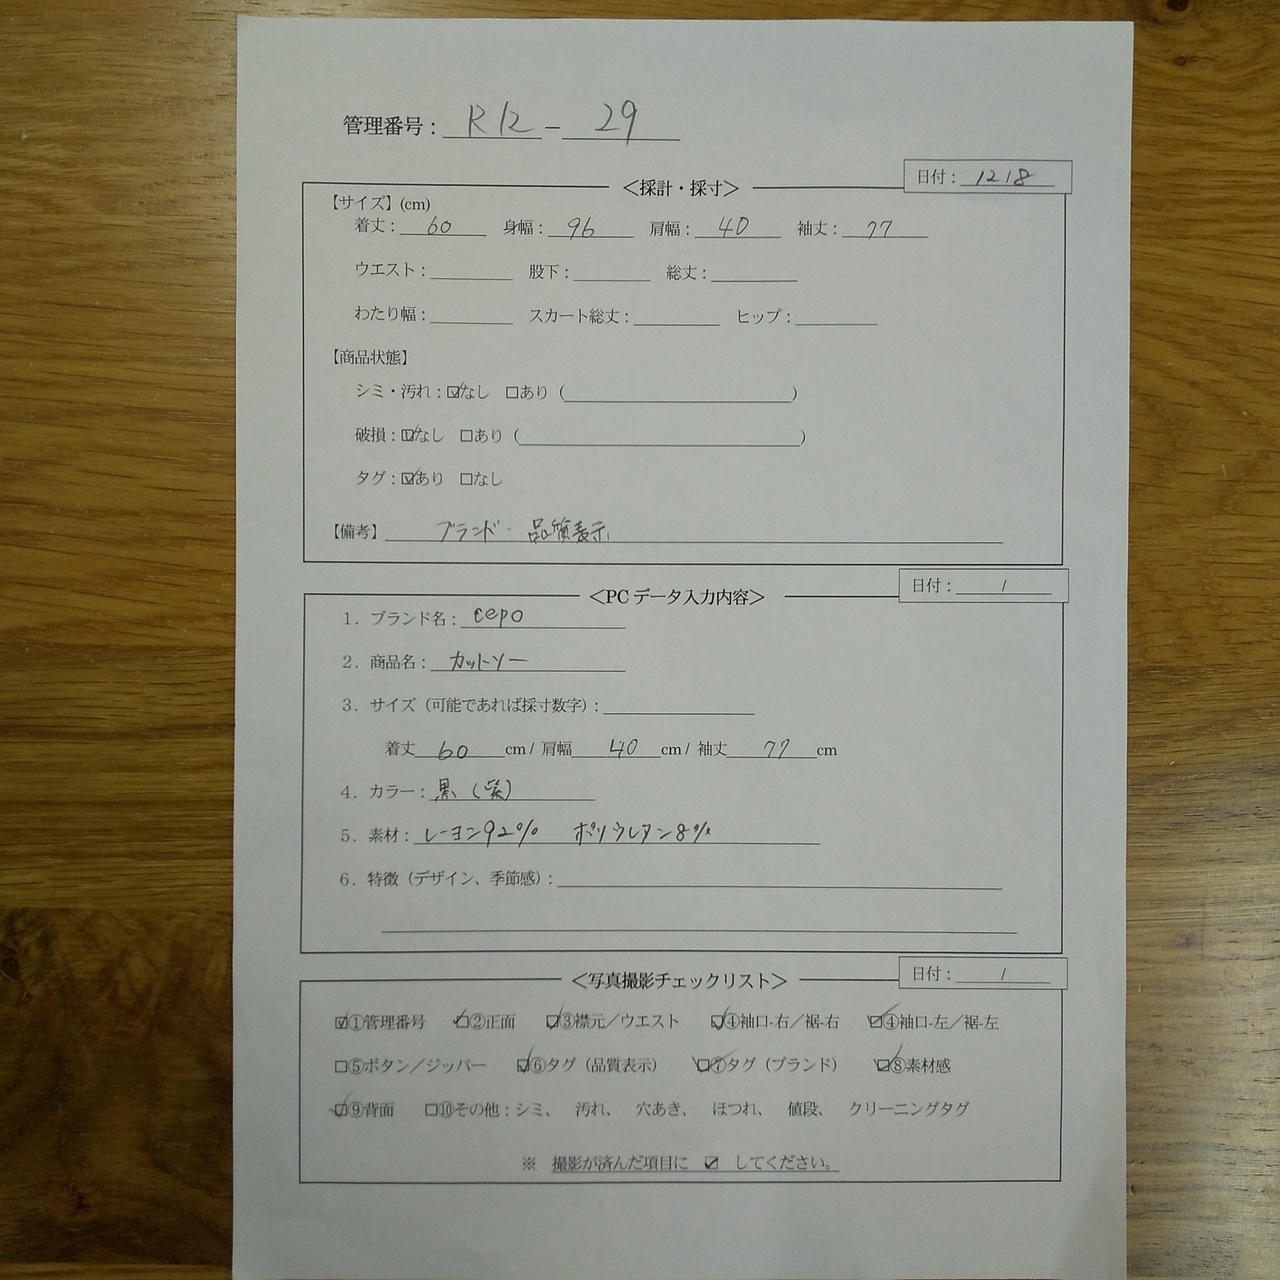 管理番号：R12－29
日付：1218
＜採計・採寸＞
【サイズ】(cm)
着丈：60 身幅：96 肩幅：40 袖丈：77
ウエスト： 股下： 総丈：
わたり幅： スカート総丈： ヒップ：
【商品状態】
シミ・汚れ：☑なし □あり（ ）
破損：☑なし □あり（ ）
タグ：☑あり □なし
【備考】 ブランド・品質表示
日付： /
＜PCデータ入力内容＞
1．ブランド名：cepo
2．商品名：カットソー
3．サイズ（可能であれば採寸数字）：
着丈 60 cm / 肩幅 40 cm / 袖丈 77 cm
4．カラー：黒（紫）
5．素材：レーヨン92% ポリウレタン8%
6．特徴（デザイン、季節感）：
日付： /
＜写真撮影チェックリスト＞
☑①管理番号 ☑②正面 ☑③襟元／ウエスト ☑④袖口-右／裾-右 ☑④袖口-左／裾-左
□⑤ボタン／ジッパー ☑⑥タグ（品質表示） ☑⑦タグ（ブランド） ☑⑧素材感
☑⑨背面 □⑩その他：シミ、 汚れ、 穴あき、 ほつれ、 値段、 クリーニングタグ
※ 撮影が済んだ項目に ☑ してください。